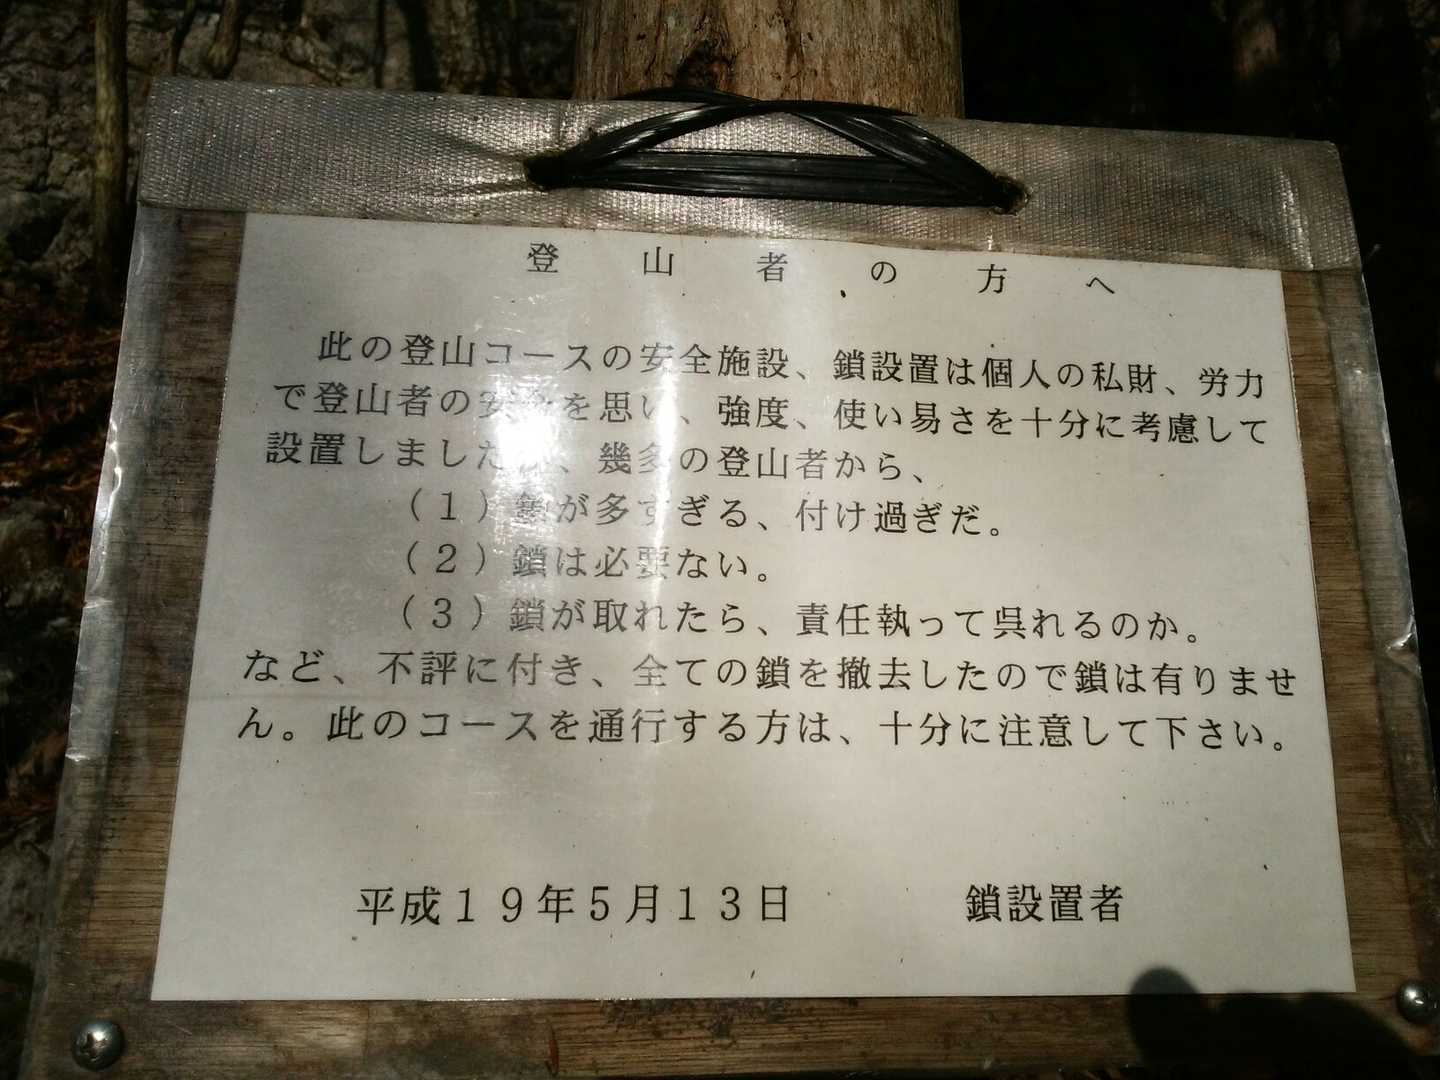 登山者の方へ
此の登山コースの安全施設、鎖設置は個人の私財、労力
で登山者の安全を思い、強度、使い易さを十分に考慮して
設置しました、幾多の登山者から、
（１）鎖が多すぎる、付け過ぎだ。
（２）鎖は必要ない。
（３）鎖が取れたら、責任執って呉れるのか。
など、不評に付き、全ての鎖を撤去したので鎖は有りませ
ん。此のコースを通行する方は、十分に注意して下さい。
平成１９年５月１３日　鎖設置者